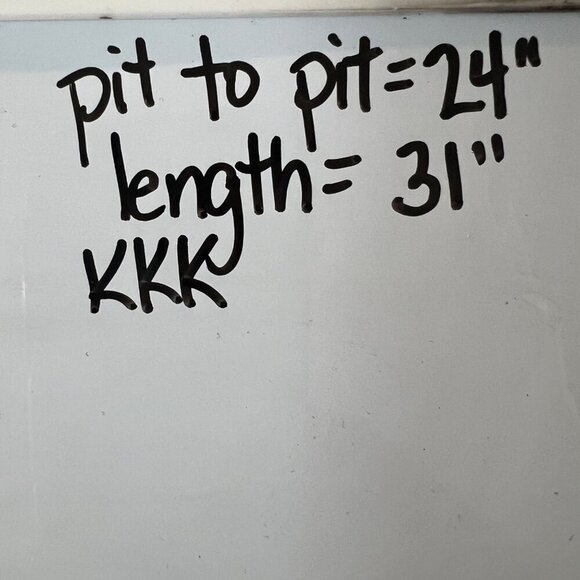 pit to pit=24"
length= 31"
KKK